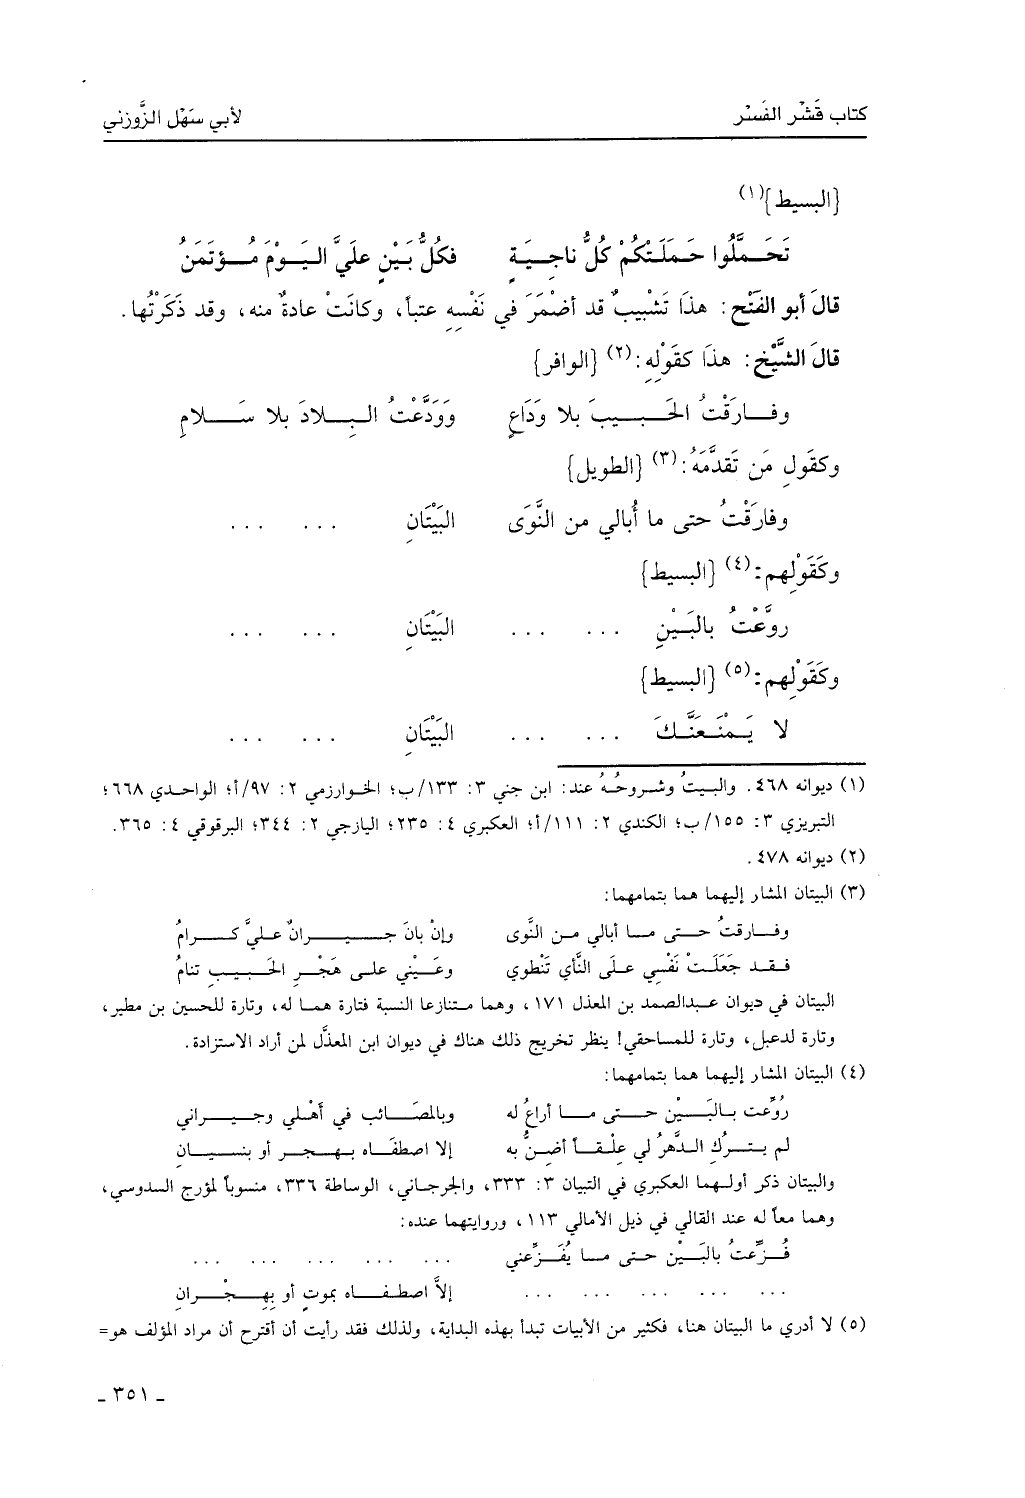 كتاب قَشْر الفَسْر لأبي سَهْل الزَّوزني
{البسيط}(١)
تَحَمَّلُوا حَمَلَتْكُمْ كُلُّ ناجِيَةٍ فكُلُّ بَيْنٍ عليَّ اليَوْمَ مُؤتَمَنُ
قالَ أبو الفَتْحِ: هذا تَشْبيبٌ قد أضْمَرَ في نَفْسِهِ عتباً، وكانَتْ عادةٌ منه، وقد ذَكَرْتُها.
قالَ الشَّيْخُ: هذا كقَوْلِهِ:(٢) {الوافر}
وفارَقْتُ الحَبيبَ بلا وَدَاعٍ ووَدَّعْتُ البِلادَ بلا سَلامِ
وكقولِ مَن تَقدَّمَهُ:(٣) {الطويل}
وفارَقْتُ حتى ما أُبالي من النَّوَى البَيْتَانِ ... ...
وكَقَوْلِهم:(٤) {البسيط}
روَّعْتُ بالبَيْنِ ... ... البَيْتَانِ ... ...
وكَقَوْلِهم:(٥) {البسيط}
لا يَمْنَعَنَّكَ ... ... البَيْتَانِ ... ...
(١) ديوانه ٤٦٨. والبيتُ وشروحُهُ عند: ابن جني ٣: ١٣٣/ب؛ الخوارزمي ٢: ٩٧/أ؛ الواحدي ٦٦٨؛
التبريزي ٣: ١٥٥/ب؛ الكندي ٢: ١١١/أ؛ العكبري ٤: ٢٣٥؛ اليازجي ٢: ٣٤٤؛ البرقوقي ٤: ٣٦٥.
(٢) ديوانه ٤٧٨.
(٣) البيتان المشار إليهما هما بتمامهما:
وفارقتُ حتى ما أبالي من النَّوى وإنْ بانَ جيرانٌ عليَّ كرامُ
فقد جَعَلَتْ نَفْسي علَى النَّأي تَنْطوي وعَيْني على هَجْرِ الحَبيبِ تنامُ
البيتان في ديوان عبدالصمد بن المعذل ١٧١، وهما متنازعا النسبة فتارة هما له، وتارة للحسين بن مطير،
وتارة لدعبل، وتارة للمساحقي! ينظر تخريج ذلك هناك في ديوان ابن المعذَّل لمن أراد الاستزادة.
(٤) البيتان المشار إليهما هما بتمامهما:
رُوِّعت بالبَيْنِ حتى ما أراعُ له وبالمصَائب في أهْلي وجيراني
لم يترُكِ الدَّهرُ لي عِلْقاً أضِنُّ به إلا اصطفَاه بهجرٍ أو بنسيانِ
والبيتان ذكر أولهما العكبري في التبيان ٣: ٣٣٣، والجرجاني، الوساطة ٣٣٦، منسوباً لمؤرج السدوسي،
وهما معاً له عند القالي في ذيل الأمالي ١١٣، وروايتهما عنده:
فُزِّعتُ بالبَيْنِ حتى ما يُفَزِّعني ... ... ... ... ...
... ... ... ... ... إلاَّ اصطفاه بموتٍ أو بِهِجْرانِ
(٥) لا أدري ما البيتان هنا، فكثير من الأبيات تبدأ بهذه البداية، ولذلك فقد رأيت أن أقترح أن مراد المؤلف هو=
ـ ٣٥١ ـ